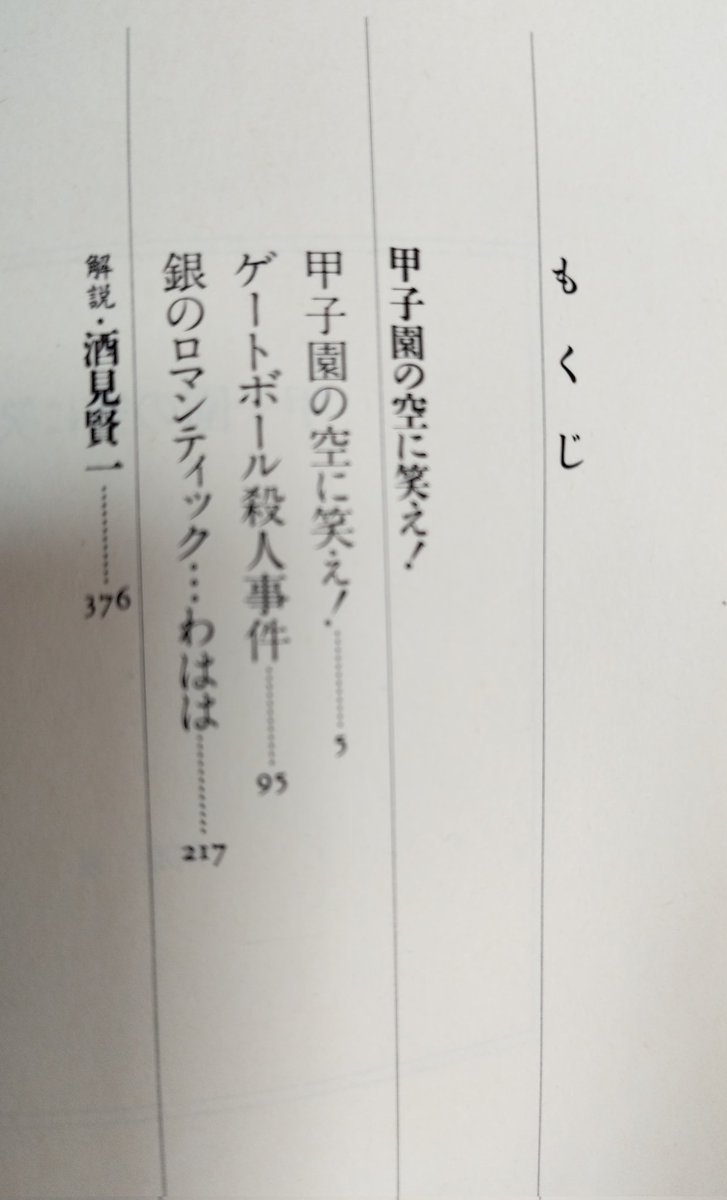 もくじ
甲子園の空に笑え！
甲子園の空に笑え！…………5
ゲートボール殺人事件…………95
銀のロマンティック…わはは…………217
解説・酒見賢一…………376